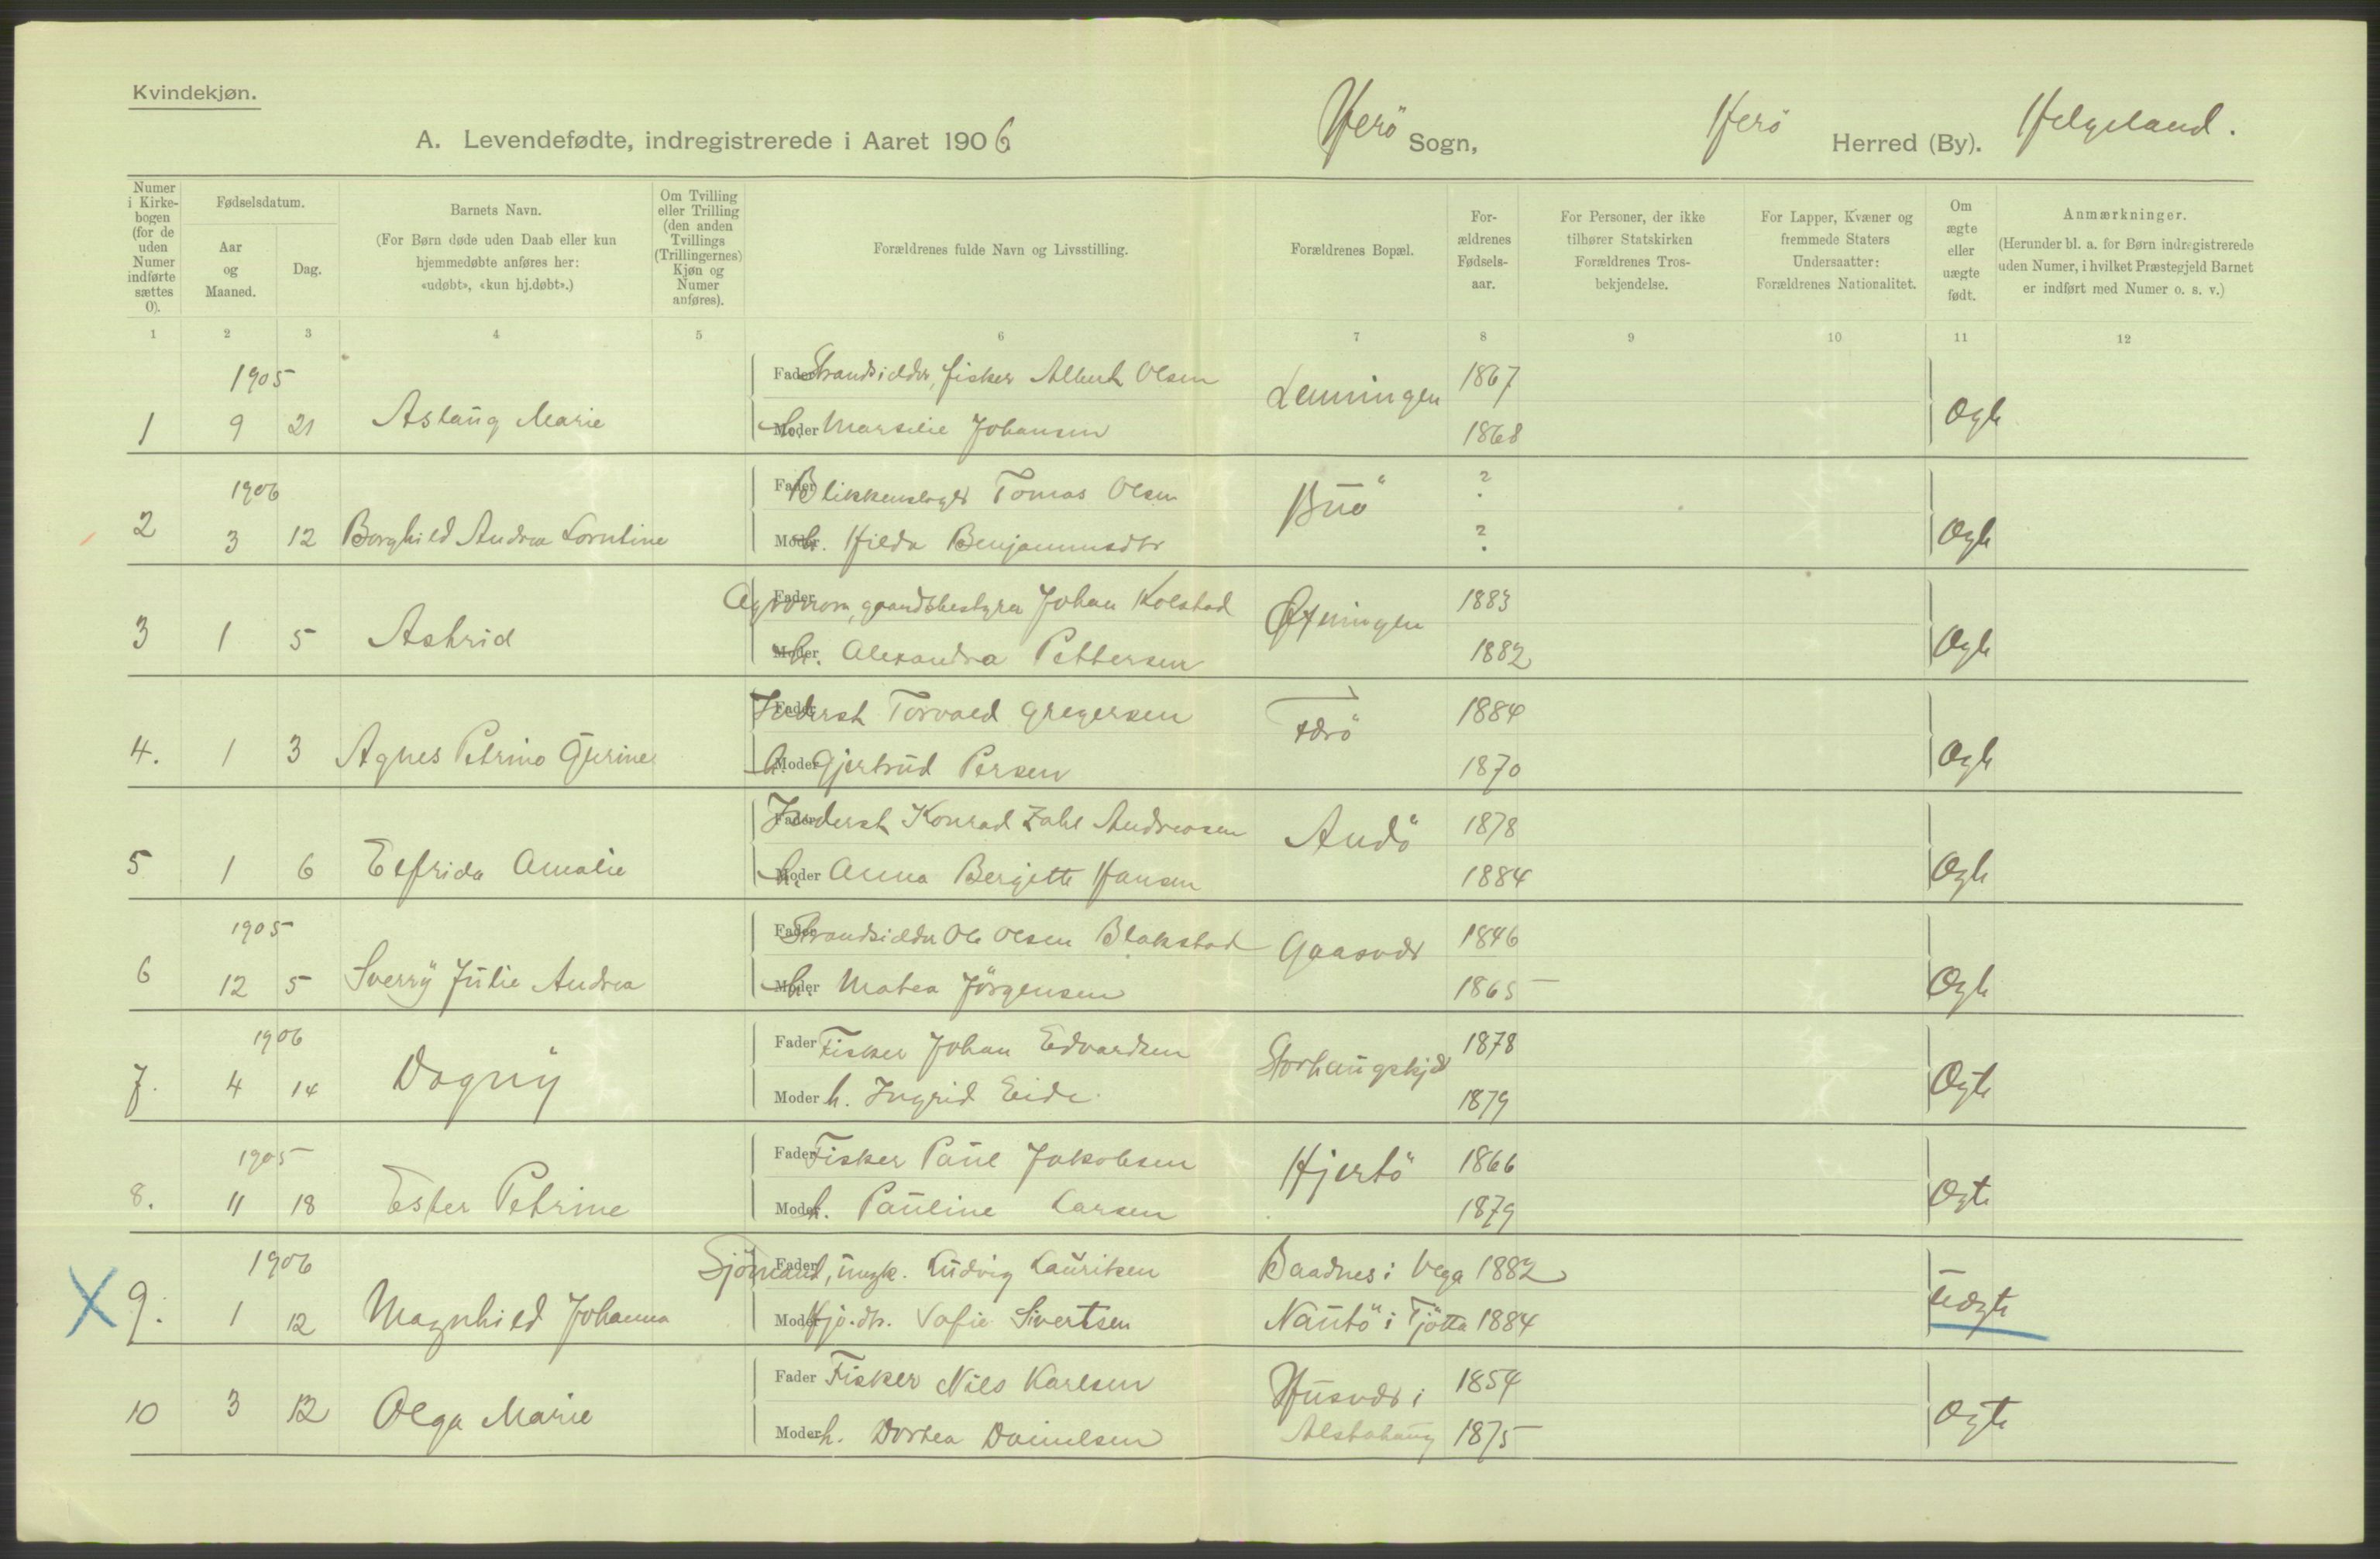 Kvindekjøn.
A. Levendefødte, indregistrerede i Aaret 1906 Herö Sogn, Herö Herred (By). Helgeland.
Numer i Kirkebogen (for de uden Numer indførte sættes 0).
Fødselsdatum.
Aar og Maaned.
Dag.
Barnets Navn.
(For Børn døde uden Daab eller kun hjemmedøbte anføres her: «udøbt», «kun hj.døbt».)
Om Tvilling eller Trilling (den anden Tvillings (Trillingernes) Kjøn og Numer anføres).
Forældrenes fulde Navn og Livsstilling.
Forældrenes Bopæl.
Forældrenes Fødselsaar.
For Personer, der ikke tilhører Statskirken Forældrenes Trosbekjendelse.
For Lapper, Kvæner og fremmede Staters Undersaatter: Forældrenes Nationalitet.
Om ægte eller uægte født.
Anmærkninger.
(Herunder bl. a. for Børn indregistrerede uden Numer, i hvilket Præstegjeld Barnet er indført med Numer o. s. v.)
1 2 3 4 5 6 7 8 9 10 11 12
1905 Fader Strandsidder, fisker Albert Olsen 1867
1 9 21 Aslaug Marie Moder h. Marselie Johansen Lenningen 1868 Ægte
1906 Fader Blikkenslager Tomas Olsen Buö ?
2 3 12 Borghild Andrea Lorntine Moder h. Hilda Benjaminsdtr ? Ægte
Fader Agronom, gaardsbestyrer Johan Kolstad Øxningen 1883
3 1 5 Astrid Moder h. Alexandra Pettersen 1882 Ægte
Fader Inderst Torvald Gregersen Færö 1884
4. 1 3 Agnes Petrine Gurine Moder h. Gjertrud Persen 1870 Ægte
Fader Inderst Konrad Zahl Andreasen Andö 1878
5 1 6 Elfrida Amalie Moder h. Anna Bergitte Hansen 1884 Ægte
1905 Fader Strandsidder Ole Olsen Blakstad Gaasvær 1846
6 12 5 Sverry Julie Andrea Moder h. Matea Jörgensen 1865 Ægte
1906 Fader Fisker Johan Edvardsen Storhaugskjær 1878
7. 4 14 Dagny Moder h. Ingrid Eide 1879 Ægte
1905 Fader Fisker Paul Jakobsen Hjertö 1866
8. 11 18 Ester Petrine Moder h. Pauline Larsen 1879 Ægte
1906 Fader Sjömand, ungk. Ludvig Lauritsen Baadnes i Vega 1882
X 9. 1 12 Magnhild Johanna Moder Hjo.dtr. Sofie Sivertsen Nautö i Tjötta 1884 Uægte
Fader Fisker Nils Karlsen Husvær i 1854
10 3 12 Olga Marie Moder h. Dortea Danielsen Alstahaug 1875 Ægte